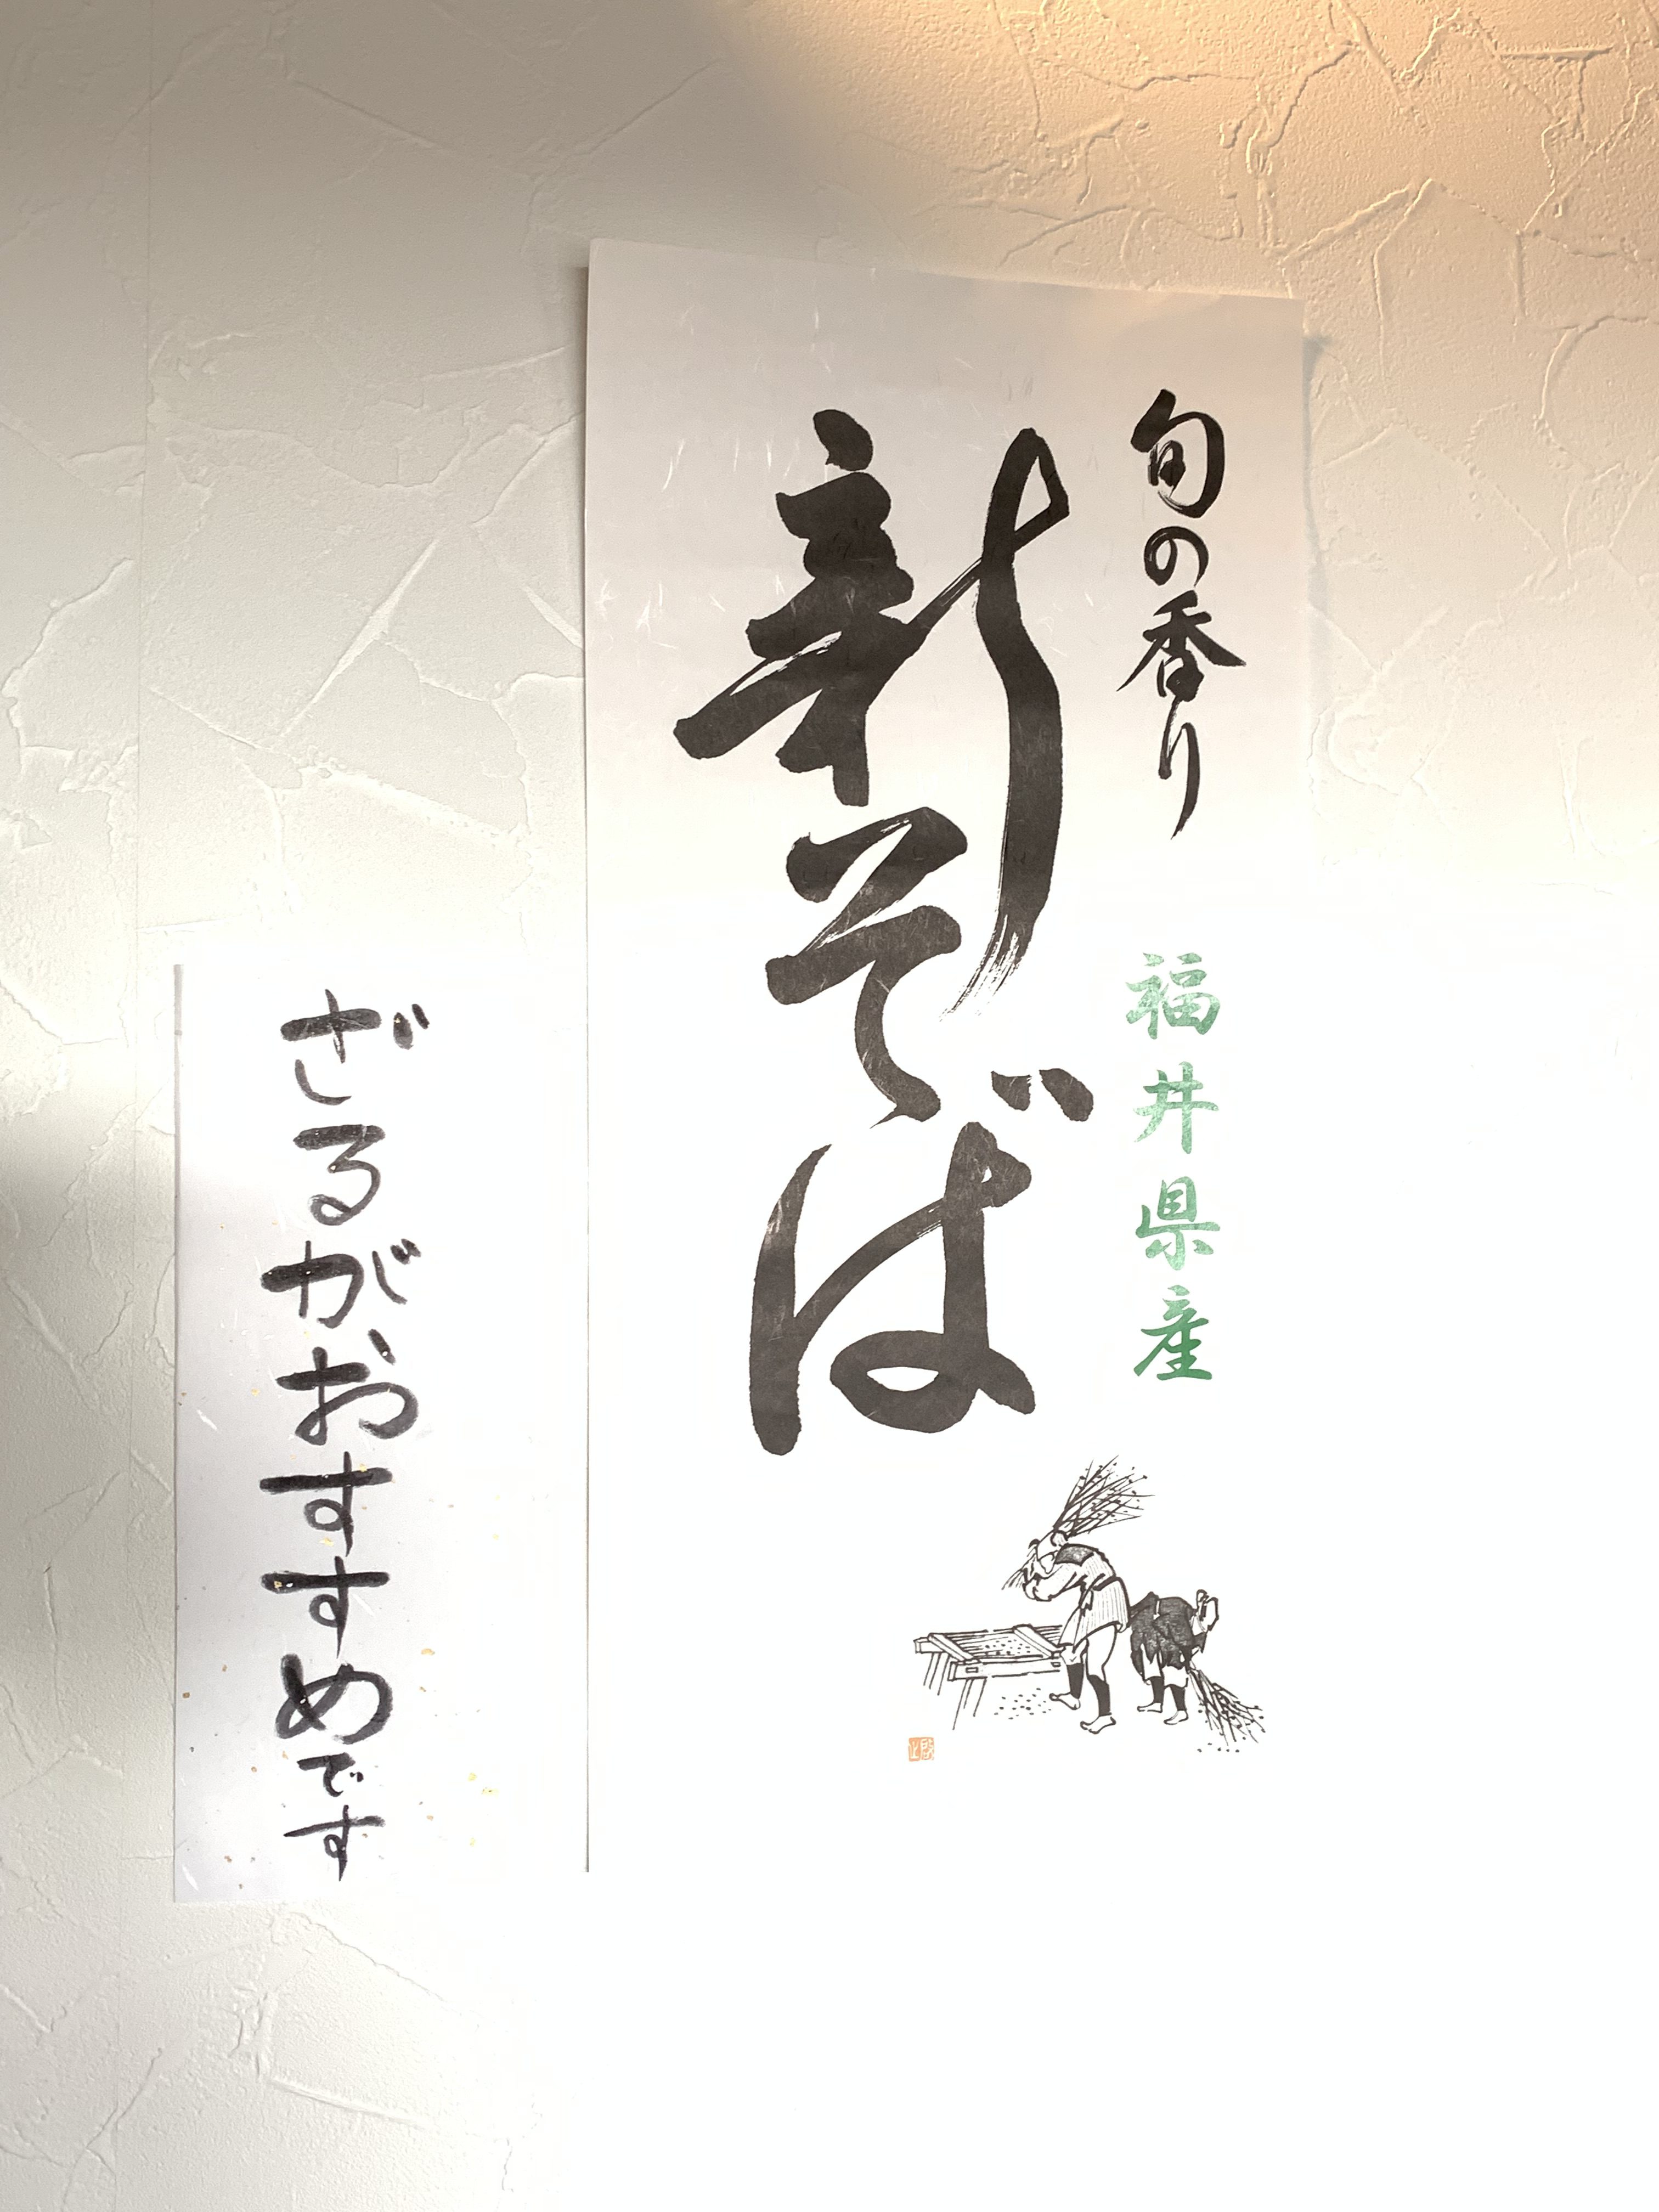 旬の香り
福井県産
新そば
ざるがおすすめです